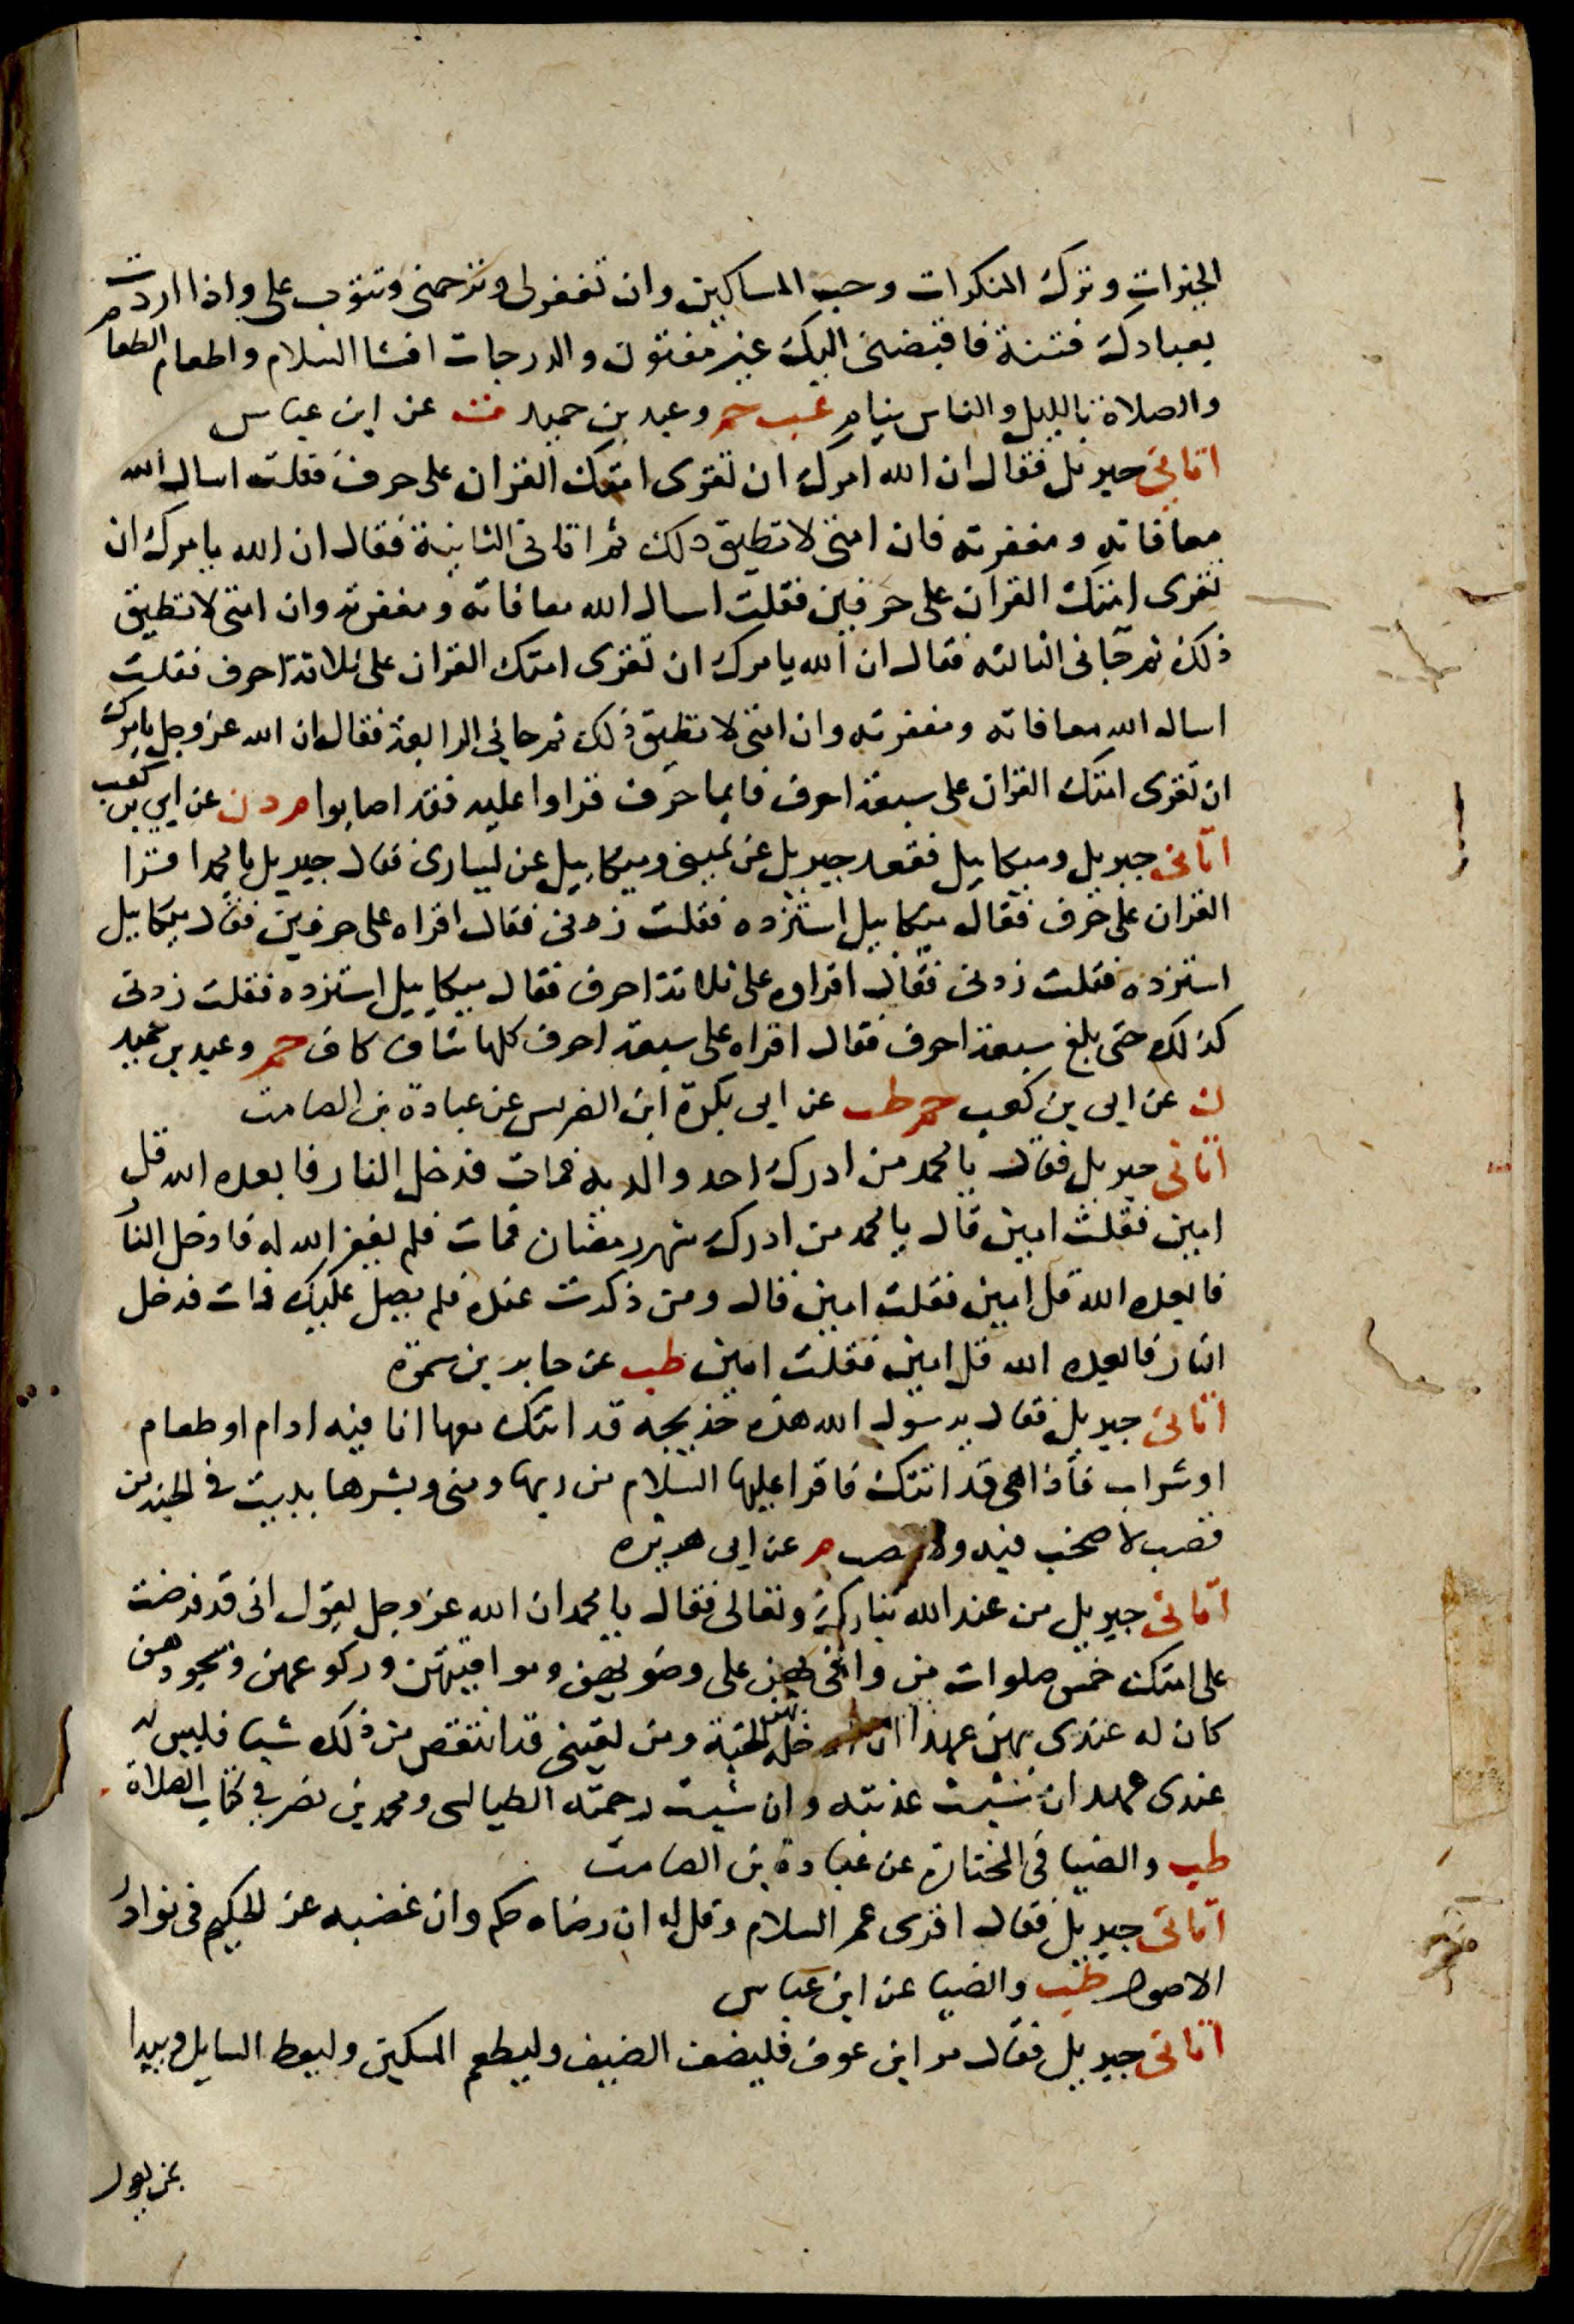 الخيرات وترك المنكرات وحب المساكين وان تغفر لى وترحمنى وتتوب على واذا اردت
بعبادك فتنة فاقبضنى اليك غير مفتون والدرجات افشا السلام واطعام الطعام
والصلاة بالليل والناس نيام عب حم وعبد بن حميد ت عن ابن عباس
اتانى جبريل فقال ان الله امرك ان تقرى امتك القران على حرف فقلت اسال الله
معافاته ومغفرته فان امتى لا تطيق ذلك ثم اتانى الثانية فقال ان الله يامرك ان
تقرى امتك القران على حرفين فقلت اسال الله معافاته ومغفرته وان امتى لا تطيق
ذلك ثم جانى الثالثه فقال ان الله يامرك ان تقرى امتك القران على ثلاثة احرف فقلت
اسال الله معافاته ومغفرته وان امتى لا تطيق ذلك ثم جانى الرابعة فقال ان الله عز وجل يامرك
ان تقرى امتك القران على سبعة احرف فايما حرف قراوا عليه فقد اصابوا م د ن عن ابي بن كعب
اتانى جبريل وميكاييل فقعد جبريل عن يمينى وميكاييل عن يسارى فقال جبريل يا محمد اقرا
القران على حرف فقال ميكاييل استزده فقلت زدنى فقال اقراه على حرفين فقال ميكاييل
استزده فقلت زدنى فقال اقراه على ثلاثة احرف فقال ميكاييل استزده فقلت زدنى
كذلك حتى بلغ سبعة احرف فقال اقراه على سبعة احرف كلها شاف كاف حم وعبد بن حميد
ن عن ابى بن كعب حم طب عن ابى بكرة ابن الضريس عن عبادة بن الصامت
اتانى جبريل فقال يا محمد من ادرك احد والديه فمات فدخل النار فابعده الله قل
امين فقلت امين قال يا محمد من ادرك شهر رمضان فمات فلم يغفر الله له فادخل النار
فابعده الله قل امين فقلت امين قال ومن ذكرت عنده فلم يصل عليك فمات فدخل
النار فابعده الله قل امين فقلت امين طب عن جابر بن سمرة
اتانى جبريل فقال يرسول الله هذه خديجه قد اتتك معها انا فيه ادام او طعام
او شراب فاذا هى قد اتتك فاقرا عليها السلام من ربها ومنى وبشرها ببيت فى الجنة من
قصب لا صخب فيه ولا نصب م عن ابى هريره
اتانى جبريل من عند الله تبارك وتعالى فقال يا محمد ان الله عز وجل يقول انى قد فرضت
على امتك خمس صلوات من وافى بهن على وضوئهن ومواقيتهن وركوعهن وسجودهن
كان له عندى بهن عهدا ان ادخله بهن الجنة ومن لقينى قد انتقص من ذلك شيا فليس له
عندى عهد ان شئت عذبته وان شيت رحمته الطيالسى ومحمد بن نصر في كتاب الصلاة
طب والضيا فى المختارة عن عبادة بن الصامت
اتانى جبريل فقال اقرى عمر السلام وقل له ان رضاه حكم وان غضبه عز الحكيم فى نوادر
الاصول طب والضيا عن ابن عباس
اتانى جبريل فقال مر ابن عوف فليضف الضيف وليطعم المسكين وليعط السايل ويبدا
بمن يعول